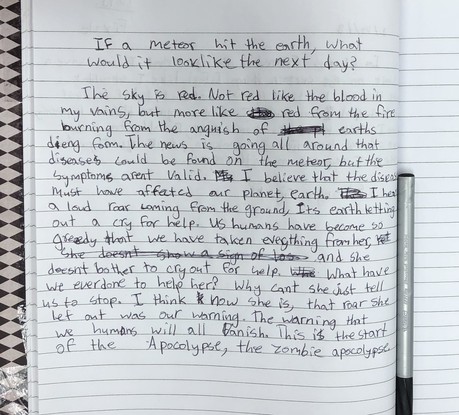 If a meteor hit the earth, what
would it look like the next day?
The sky is red. Not red like the blood in
my vains, but more like red from the fire
burning from the anguish of earths
dieng form. The news is going all around that
diseases could be found on the meteor, but the
symptoms arent valid. I believe that the diseas
must have affected our planet, earth. I hea
a loud roar coming from the ground, Its earth letting
out a cry for help. Us humans have become so
greedy that we have taken everything from her,
she doesn't show a sign of loss and she
doesnt bother to cry out for help. What have
we ever done to help her? Why cant she just tell
us to stop. I think now she is, that roar she
let out was our warning. The warning that
we humans will all vanish. This is the start
of the Apocolypse, the zombie apocolypse